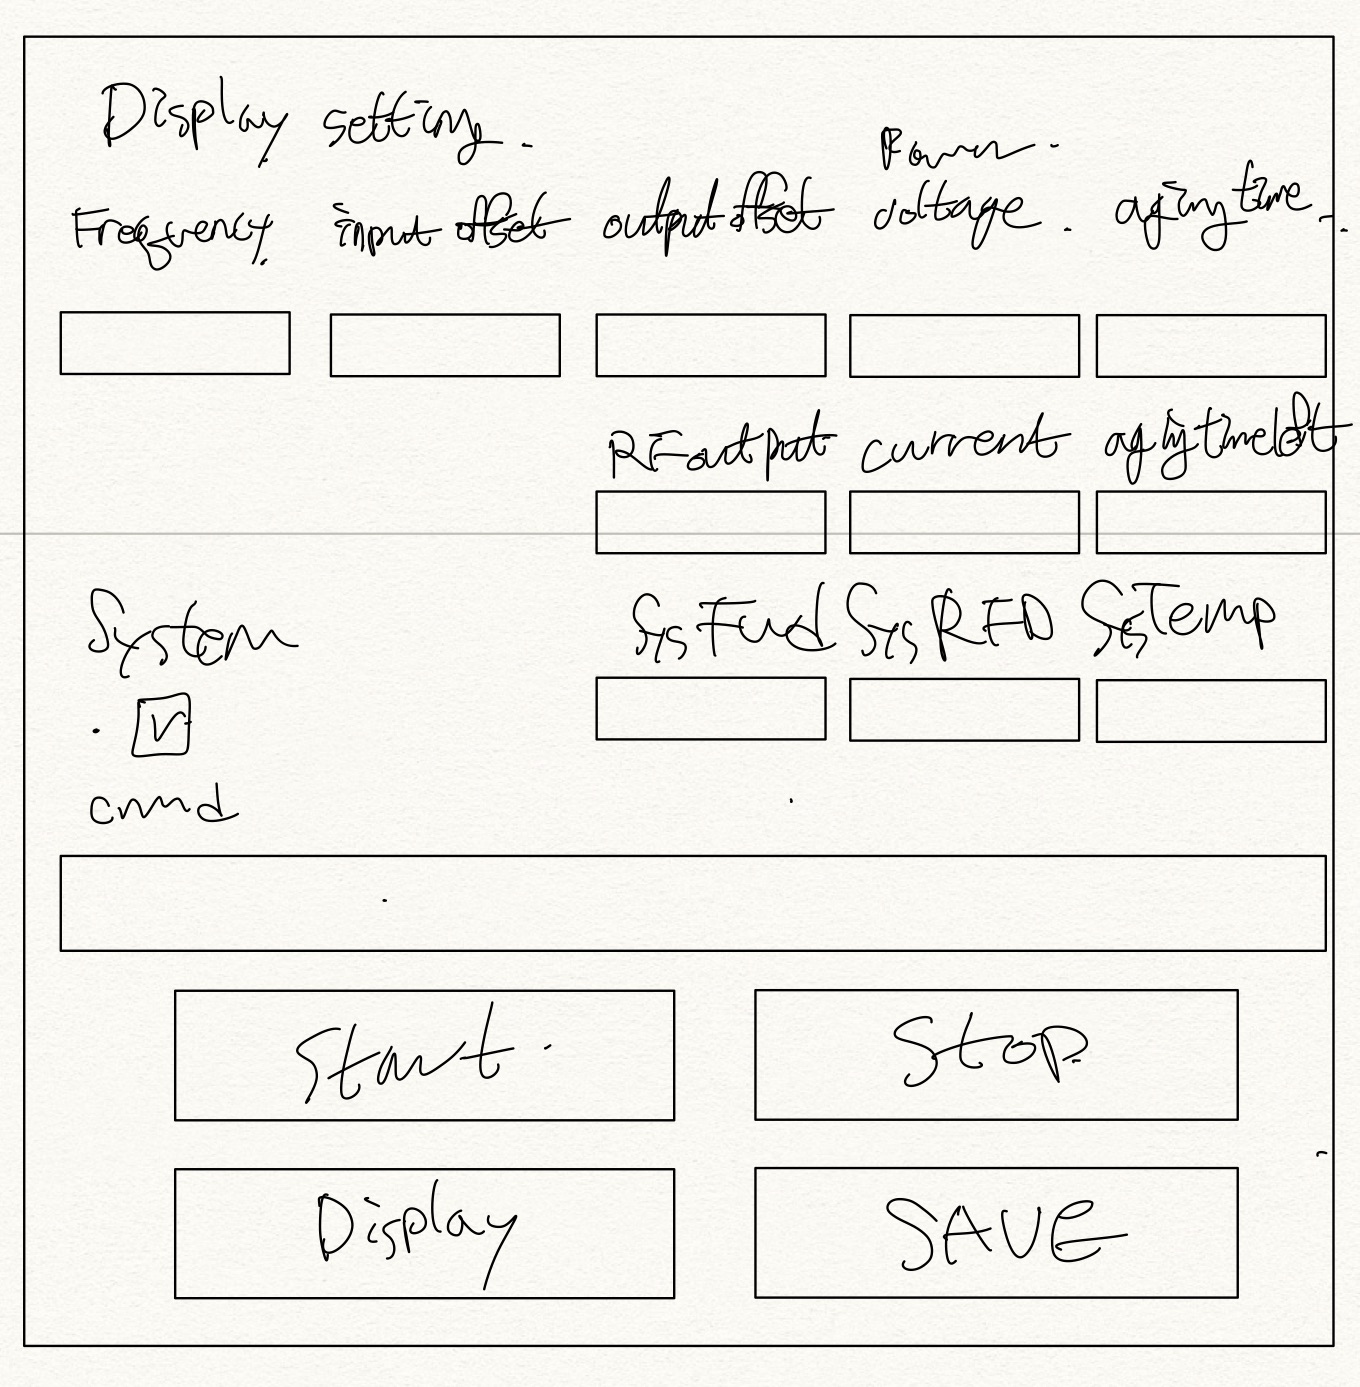 Display setting.
Power
Frequency input offset output offset voltage. aging time.
RF output current aging time left
System Sys Fwd Sys RFD Sys Temp
cmd
Start
Stop
Display
SAVE